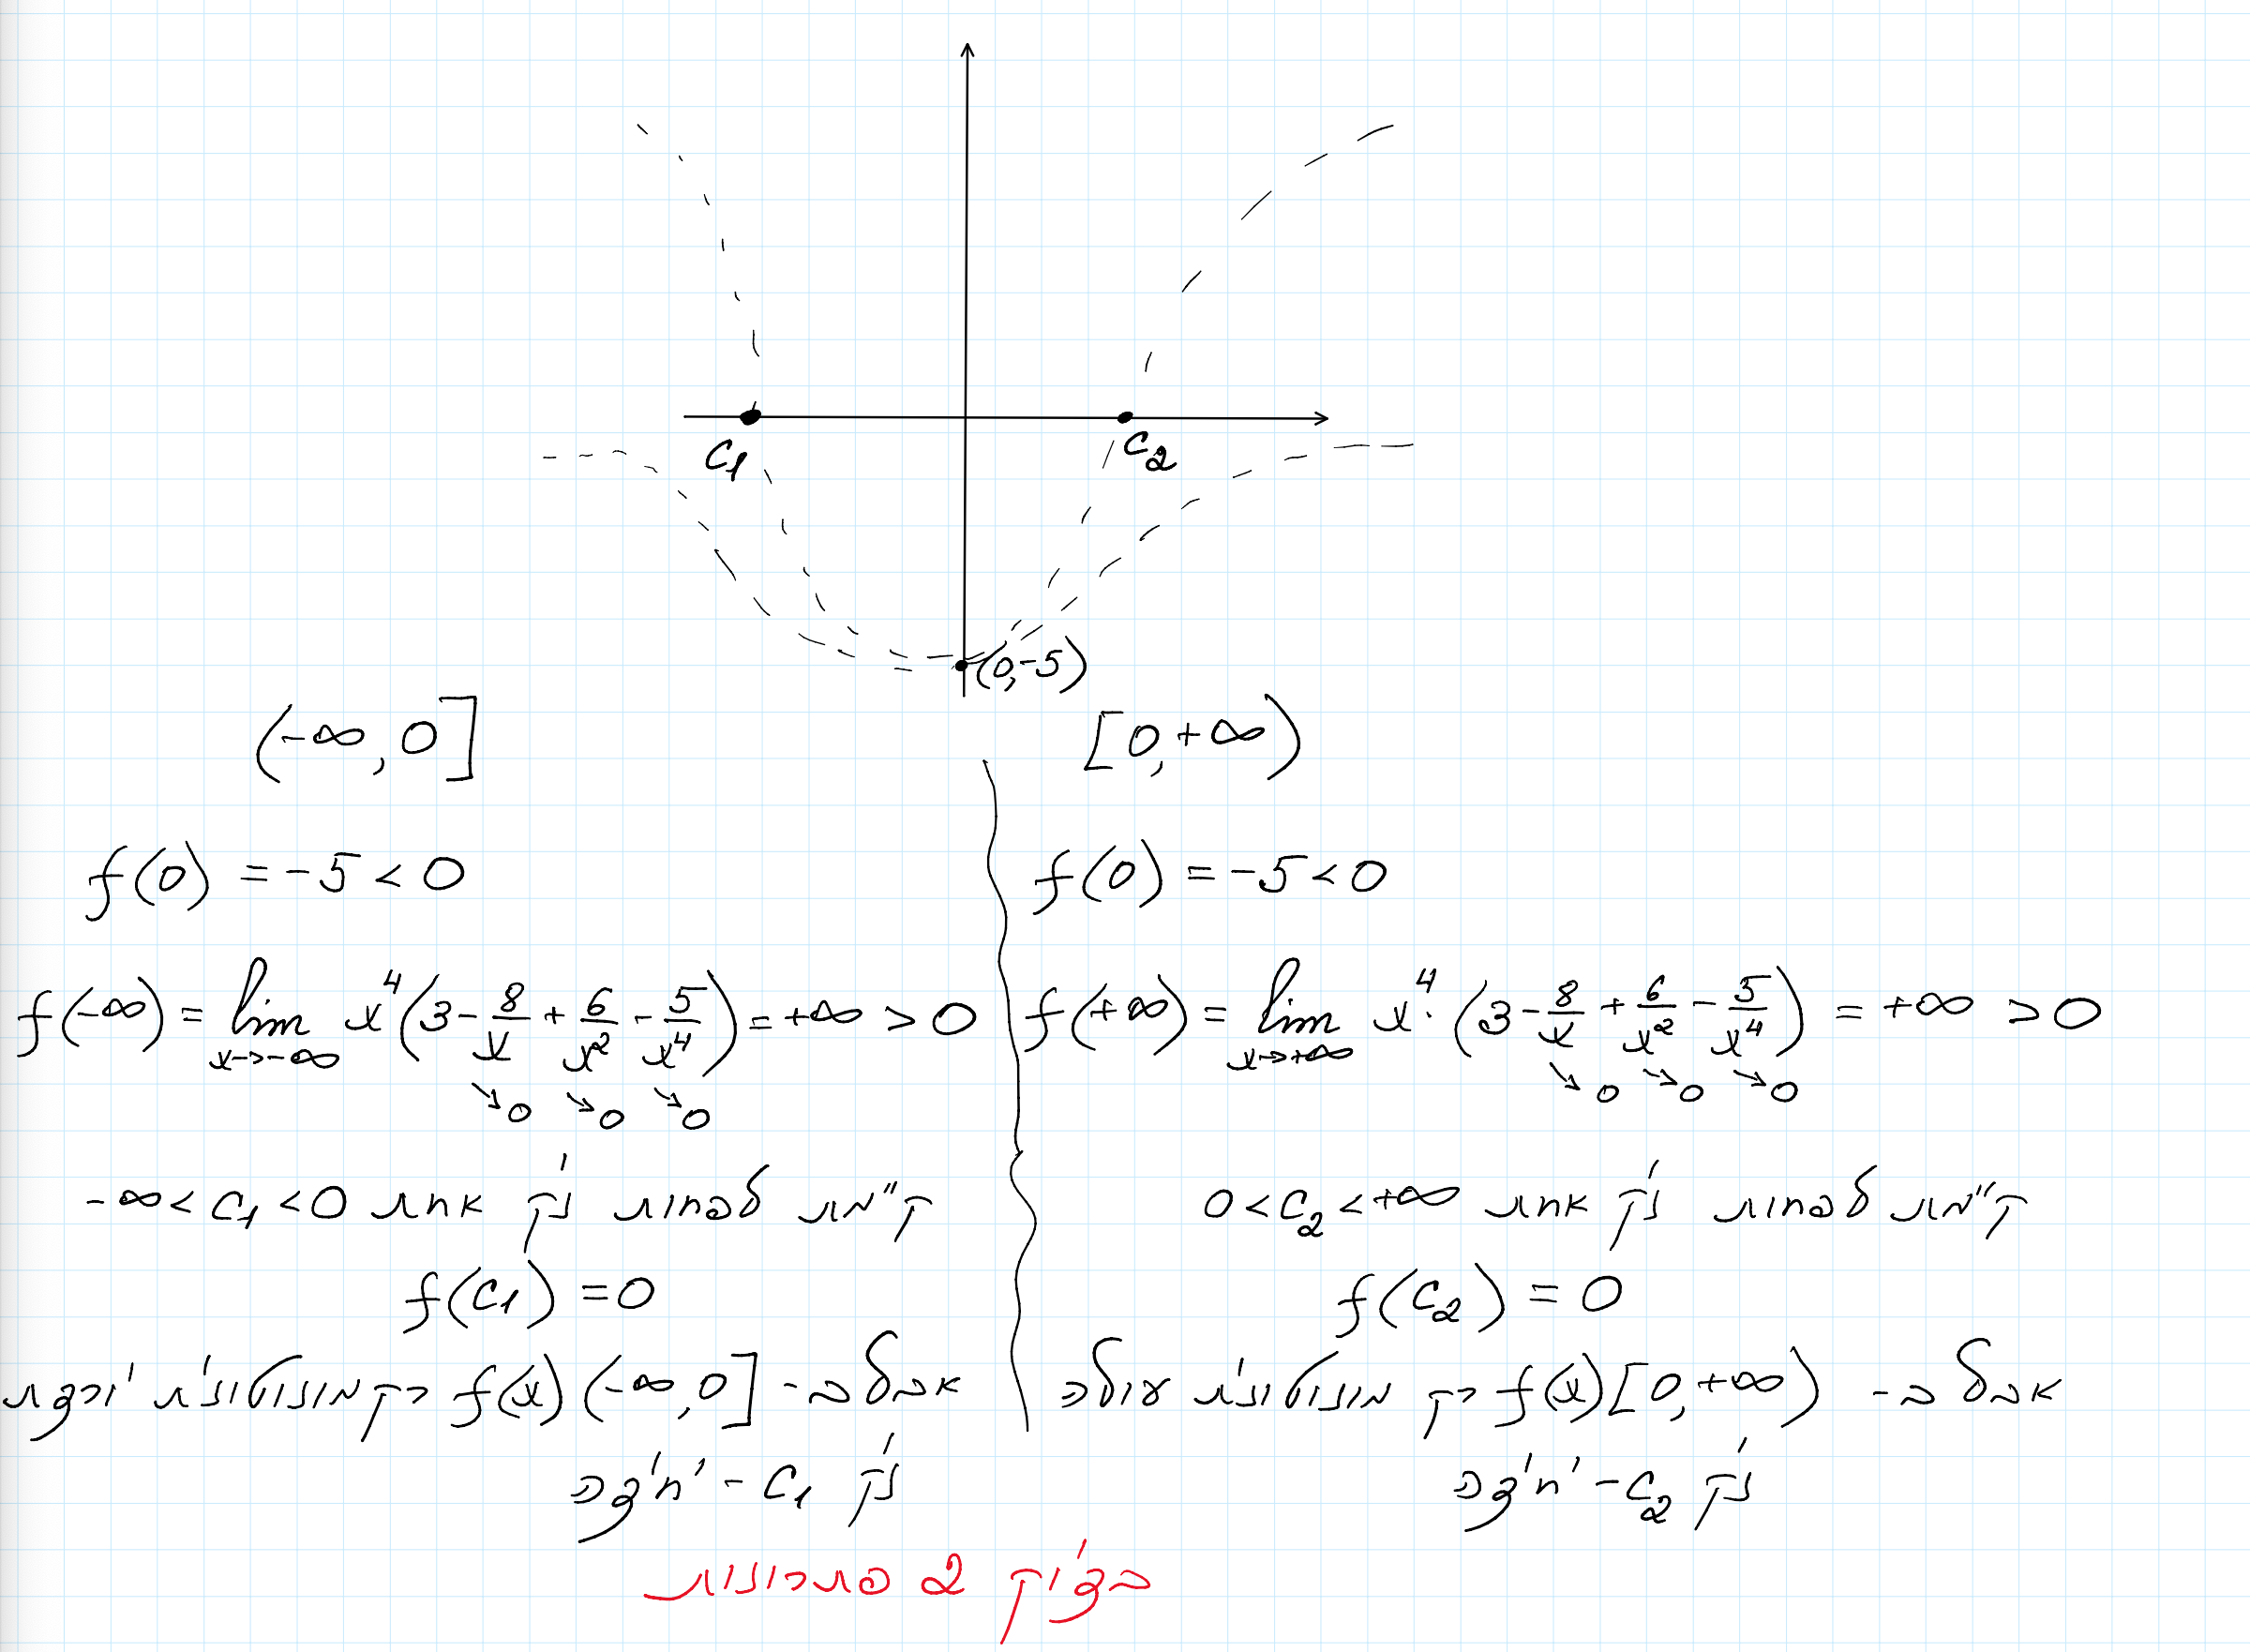 c₁
c₂
(0,-5)
(-∞,0]
f(0) = -5 < 0
f(-∞) = lim x⁴(3 - 8/x + 6/x² - 5/x⁴) = +∞ > 0
x→-∞
↘0 ↘0 ↘0
קיימת לפחות נק' אחת -∞ < c₁ < 0
f(c₁) = 0
אבל ב- (-∞,0] f(x) רק מונוטונית יורדת
נק' c₁ - יחידה
[0,+∞)
f(0) = -5 < 0
f(+∞) = lim x⁴·(3 - 8/x + 6/x² - 5/x⁴) = +∞ > 0
x→+∞
↘0 ↘0 ↘0
קיימת לפחות נק' אחת 0 < c₂ < +∞
f(c₂) = 0
אבל ב- [0,+∞) f(x) רק מונוטונית עולה
נק' c₂ - יחידה
בדיוק 2 פתרונות